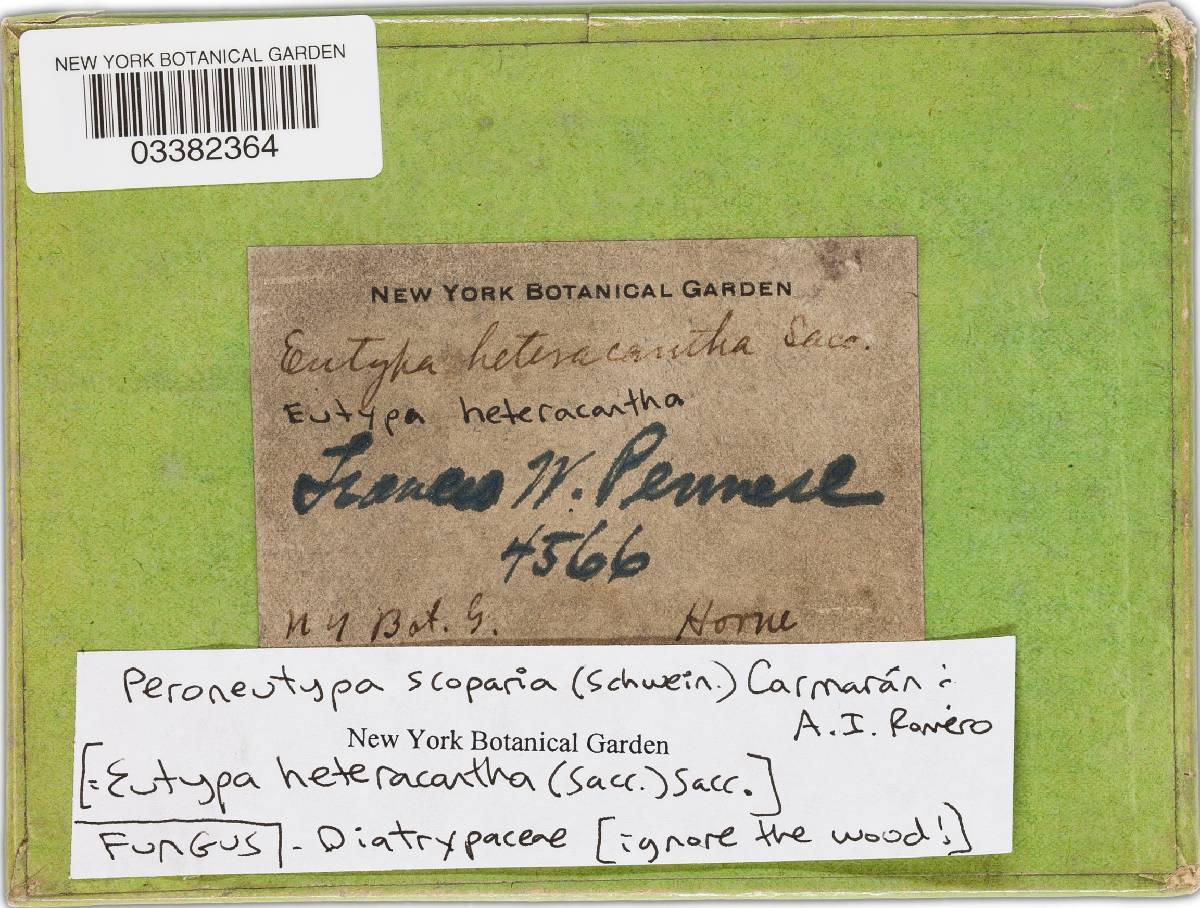 NEW YORK BOTANICAL GARDEN
03382364
NEW YORK BOTANICAL GARDEN
Eutypa heteracantha Sacc.
Eutypa heteracantha
Francis W. Pennell
4566
N Y Bot. G. Horne
Peroneutypa scoparia (Schwein.) Carmarán &
A. I. Romero
New York Botanical Garden
[= Eutypa heteracantha (Sacc.) Sacc.]
FUNGUS - Diatrypaceae [ignore the wood!]